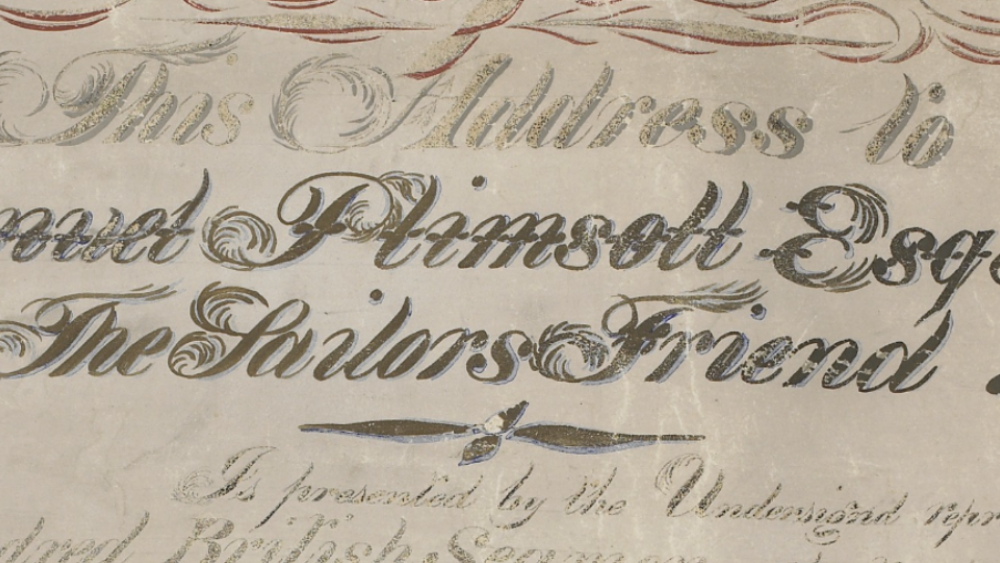 This Address to
muel Plimsoll Esq
The Sailors Friend
Is presented by the Undersignd repr
dred British Seamen